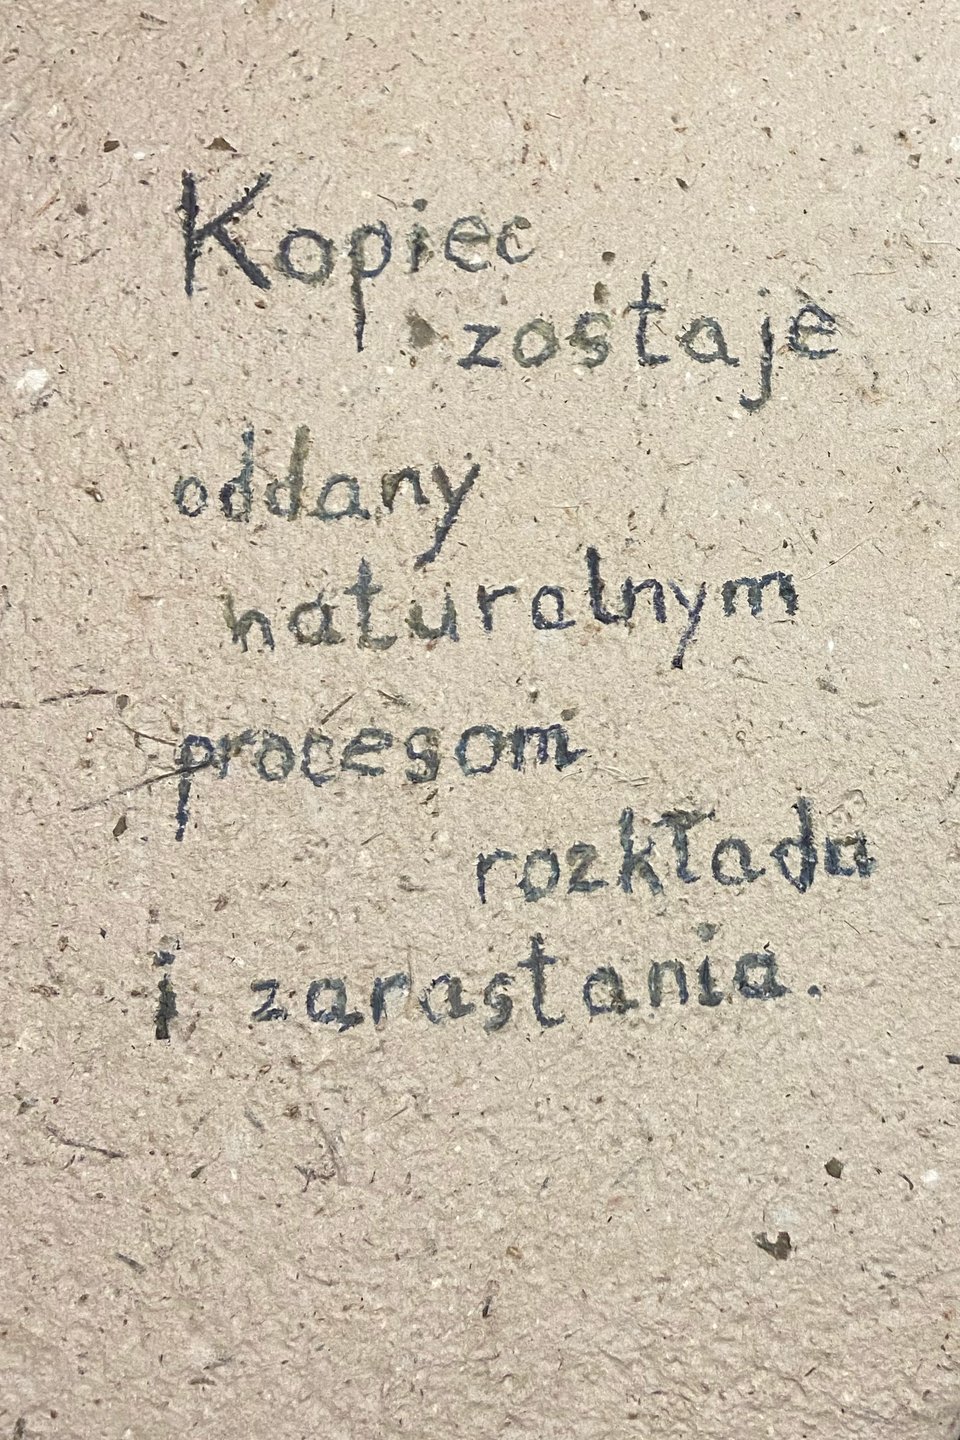 Kopiec
zostaje
oddany
naturalnym
procesom
rozkładu
i zarastania.